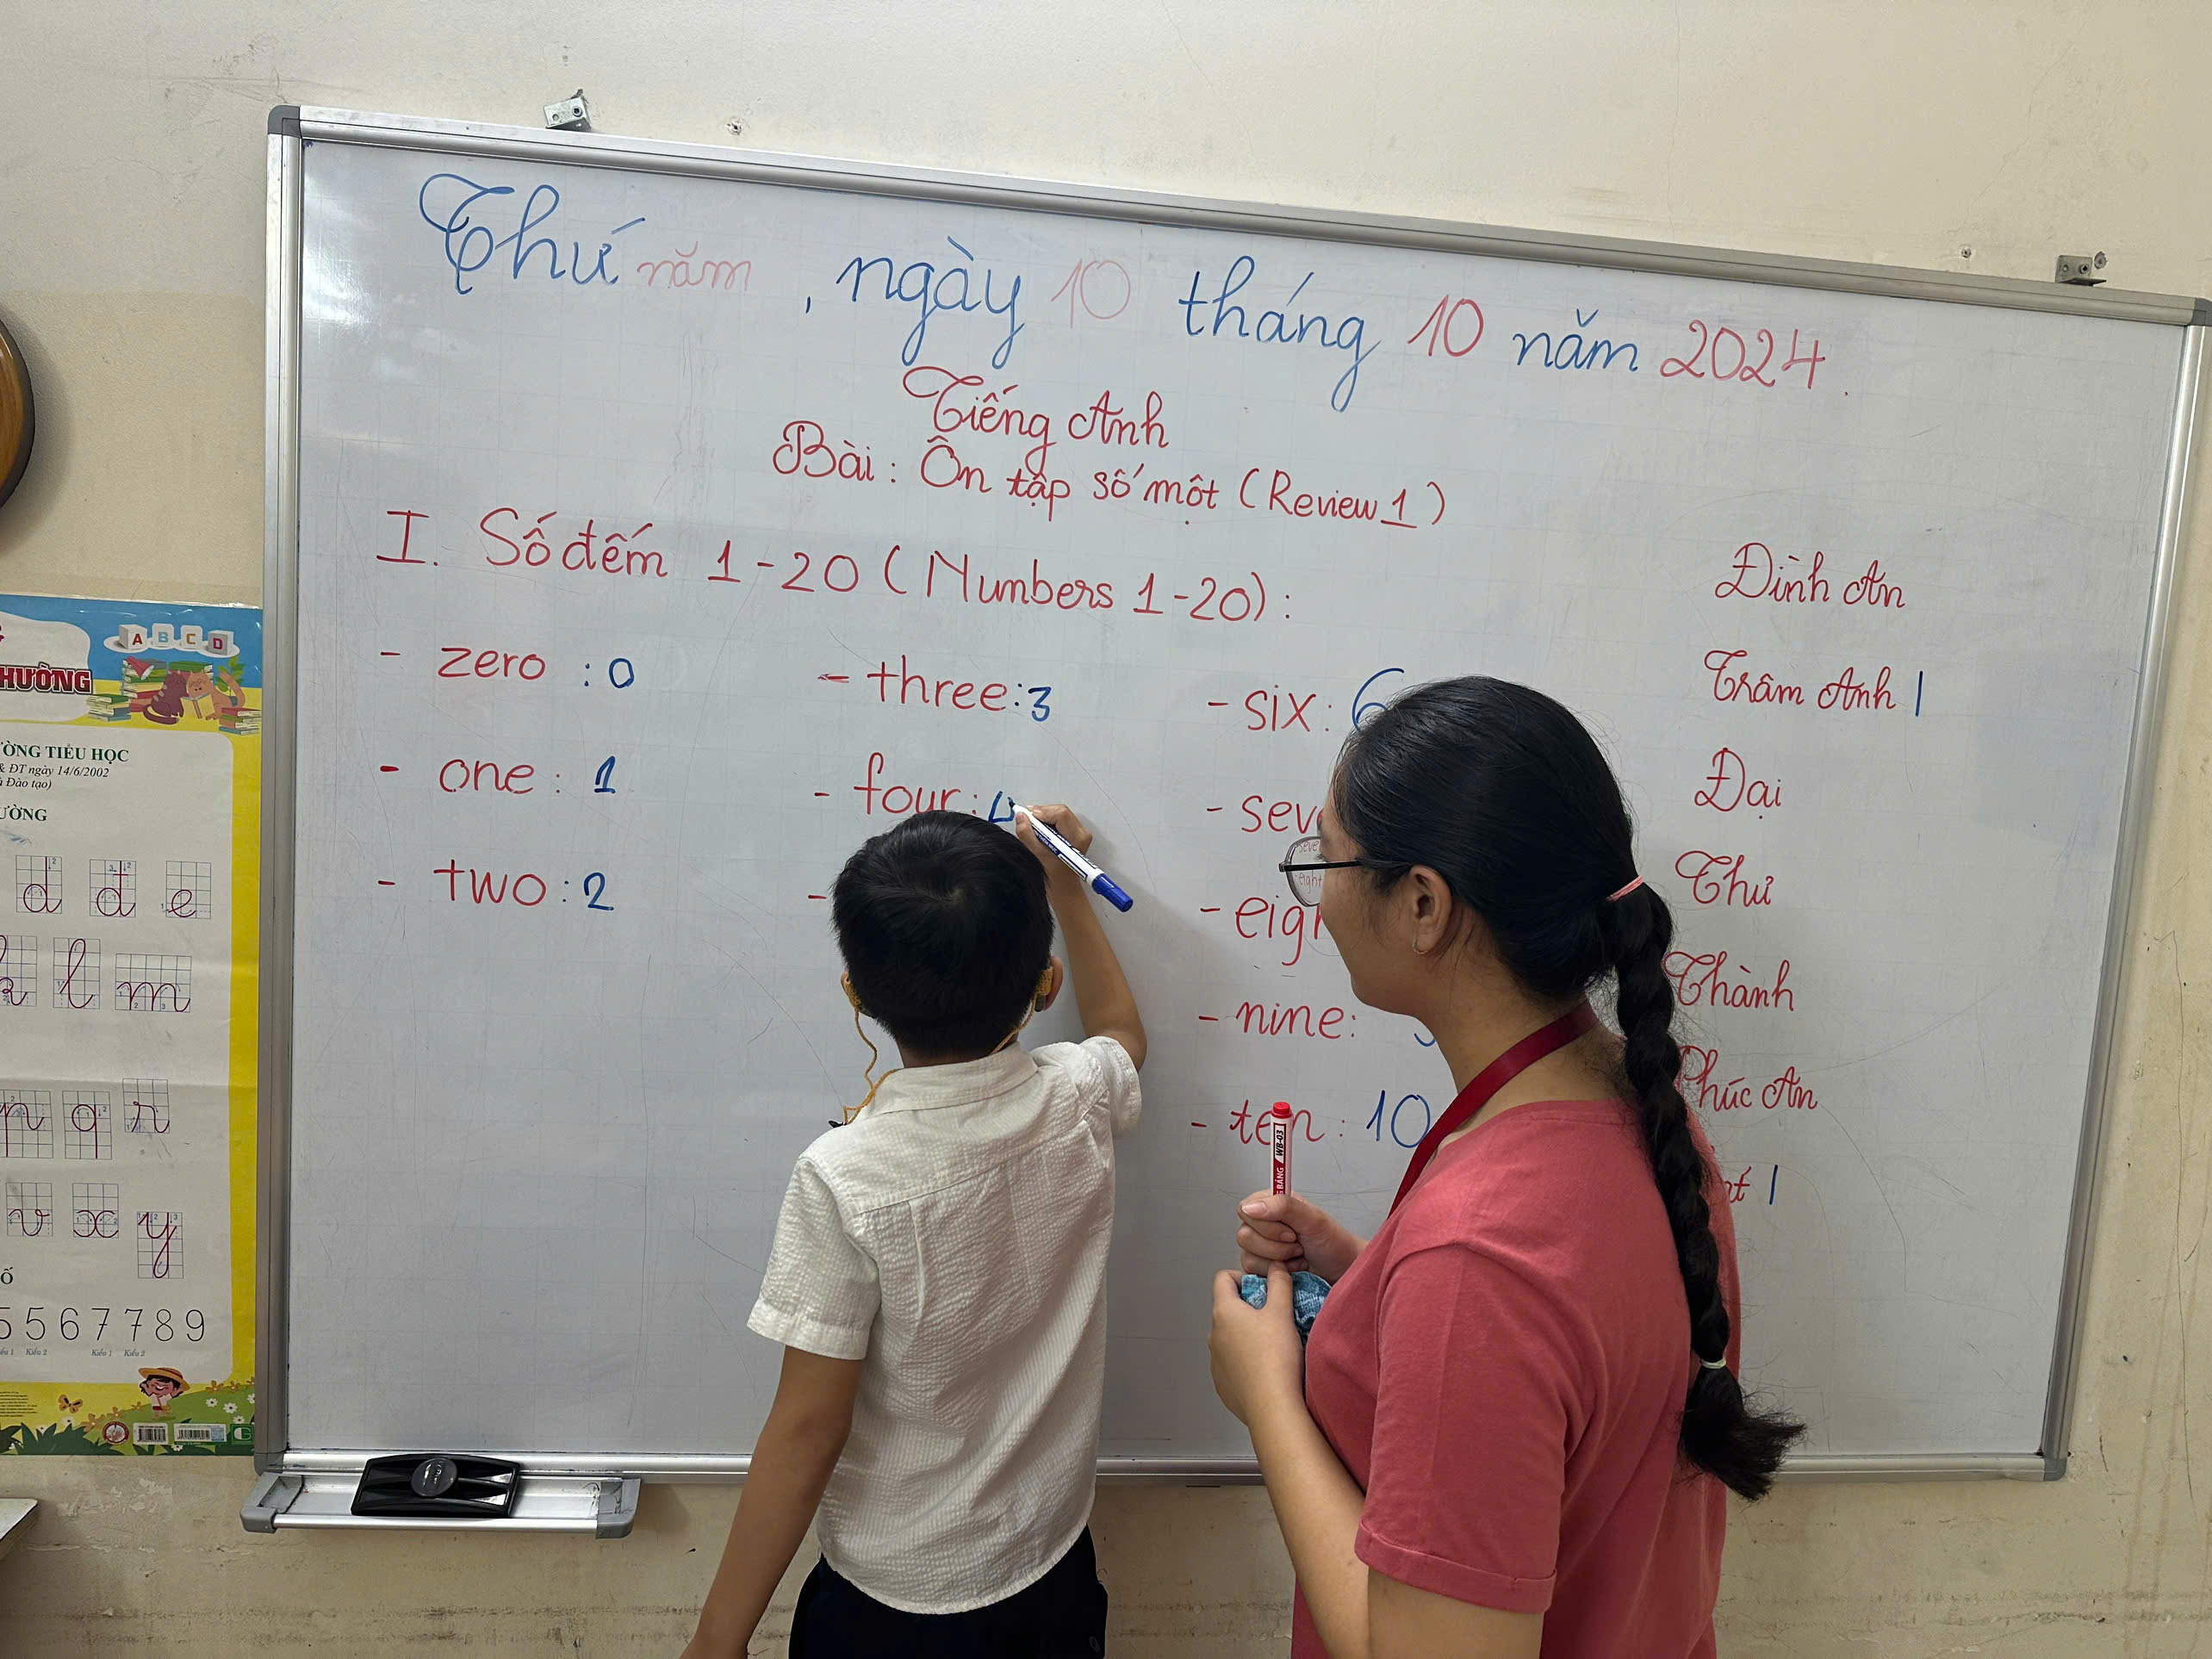 Thứ năm, ngày 10 tháng 10 năm 2024.
Tiếng Anh
Bài: Ôn tập số một (Review 1)
I. Số đếm 1-20 (Numbers 1-20):
- zero : 0
- one : 1
- two : 2
- three: 3
- four: 4
-
- six: 6
-
-
- nine:
- ten: 10
Đình An
Trâm Anh 1
Đại
Thư
Thành
Phúc An
1
A B C D
& ĐT ngày 14/6/2002
TIỂU HỌC
d đ e
l m
q r
v x y
5 5 6 7 7 8 9
Kiểu 2 Kiểu 1 Kiểu 2
WB-03
BẢNG